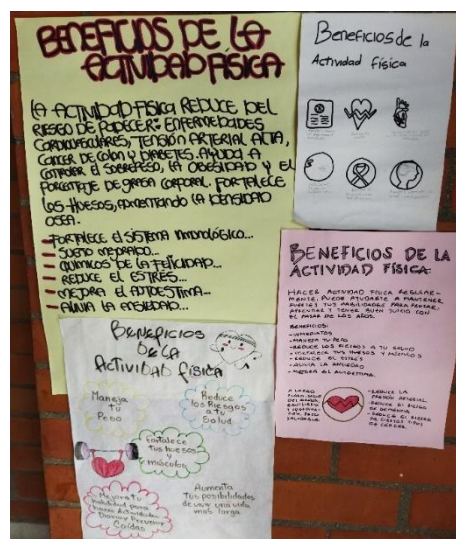 BENEFICIOS DE LA
ACTIVIDAD FÍSICA
LA ACTIVIDAD FÍSICA REDUCE DEL
RIESGO DE PADECER: ENFERMEDADES
CARDIOVASCULARES, TENSIÓN ARTERIAL ALTA,
CANCER DE COLON Y DIABETES. AYUDA A
CONTROLAR EL SOBREPESO, LA OBESIDAD Y EL
PORCENTAJE DE GRASA CORPORAL. FORTALECE
LOS HUESOS, AUMENTANDO LA DENSIDAD
OSEA.
- FORTALECE EL SISTEMA INMONOLÓGICO...
- SUEÑO MEJORADO...
- QUÍMICOS DE LA FELICIDAD...
- REDUCE EL ESTRÉS...
- MEJORA EL AUTOESTIMA...
- ALIVIA LA ANSIEDAD...
Beneficios de la
Actividad física
BENEFICIOS DE LA
ACTIVIDAD FÍSICA
HACER ACTIVIDAD FÍSICA REGULAR-
MENTE, PUEDE AYUDARTE A MANTENER
TUS HABILIDADES PARA PENSAR,
APRENDER Y TENER BUEN JUICIO CON
EL PASAR DE LOS AÑOS.
BENEFICIOS:
- INMEDIATOS
- MANEJA TU PESO
- REDUCE LOS RIESGOS A TU SALUD
- FORTALECE TUS HUESOS Y MÚSCULOS
- REDUCE EL ESTRÉS
- ALIVIA LA ANSIEDAD
- MEJORA EL AUTOESTIMA.
A LARGO
PLAZO
- REDUCE LA
PRESIÓN ARTERIAL
- REDUCE EL RIESGO
DE DEMENCIA
- REDUCE EL RIESGO
DE CIERTOS TIPOS
DE CÁNCER.
Beneficios
De La
Actividad física
Maneja
Tu
Peso
Reduce
los Riesgos
a Tu
Salud
Fortalece
Tus huesos
y
músculos
Mejora Tu
habilidad para
hacer Actividades
Diarias y Prevenir
Caídas
Aumenta
Tus posibilidades
de vivir una vida
mas larga